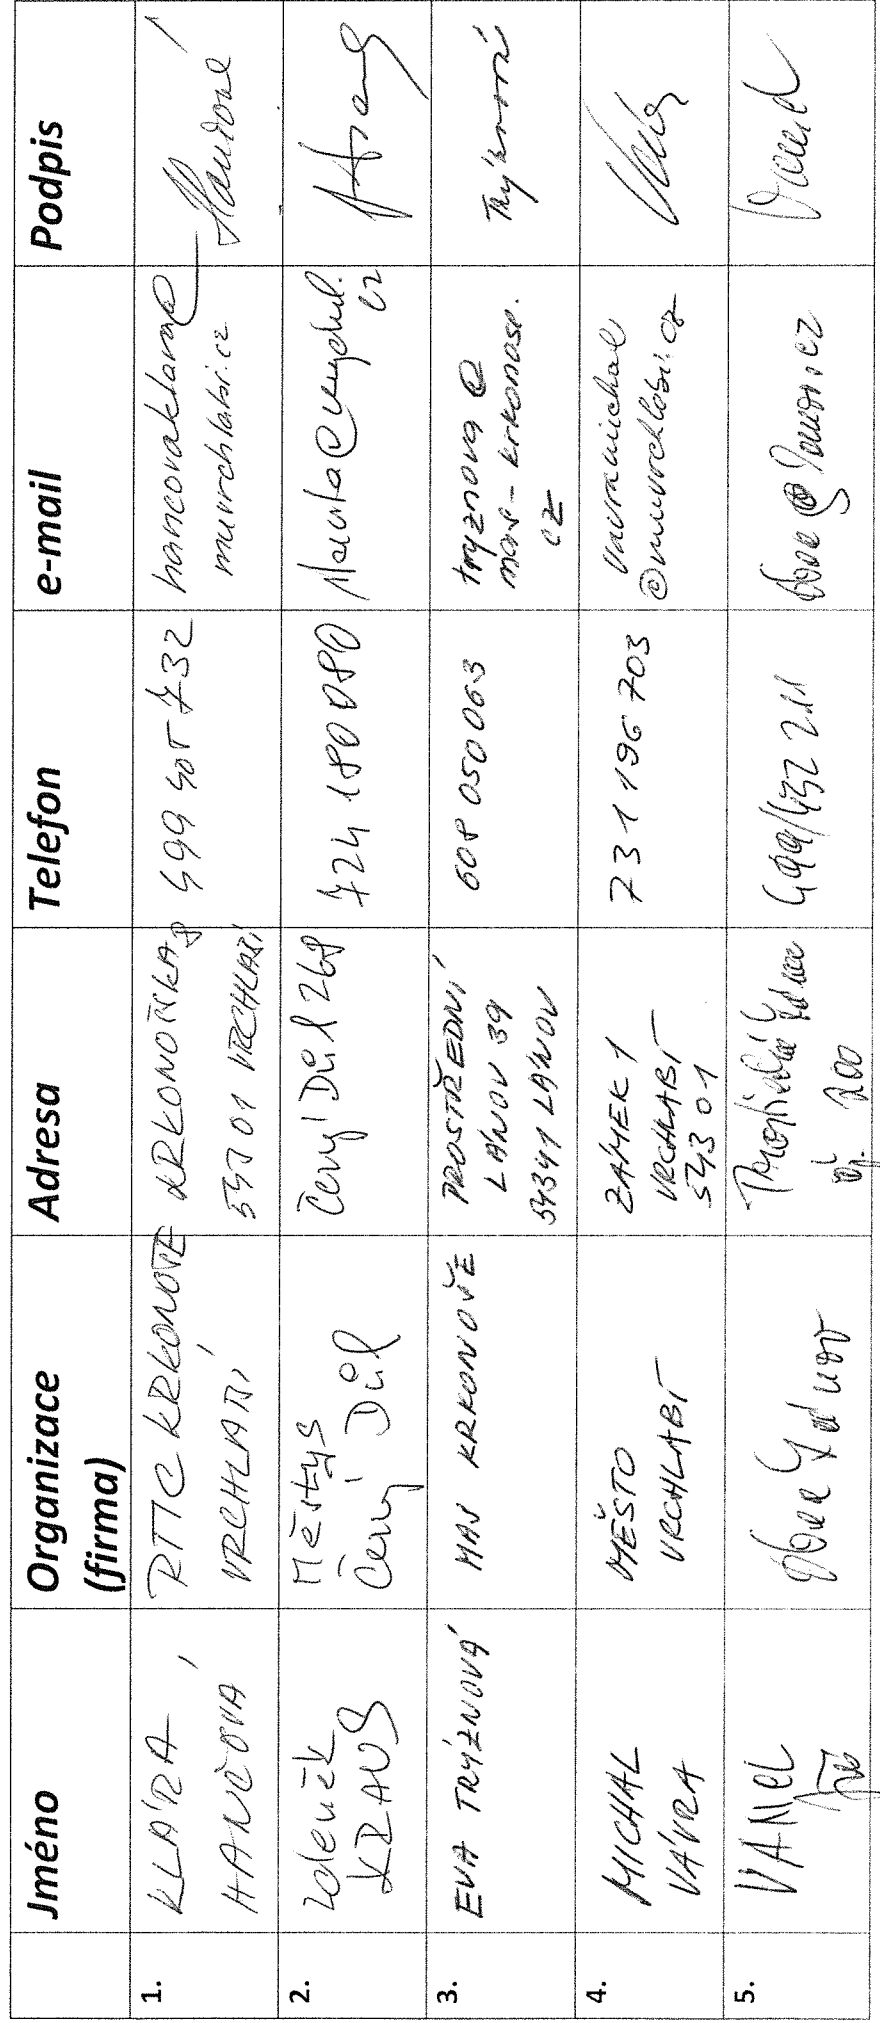 Jméno
Organizace
(firma)
Adresa
Telefon
e-mail
Podpis
1.
KLÁRA
HANČOVÁ
RTIC KRKONOŠE
VRCHLABÍ
KRKONOŠSKÁ 8
543 01 VRCHLABÍ
499 405 732
hancovaklara@
muvrchlabi.cz
2.
Zdeněk
KRAUS
Městys
Černý Důl
Černý Důl 268
724 180 080
3.
EVA TRÝZNOVÁ
MAS KRKONOŠE
PROSTŘEDNÍ
LÁNOV 39
54341 LÁNOV
608 050 063
tryznova@
mas-krkonose.
cz
Trýznová
4.
MICHAL
VÁVRA
MĚSTO
VRCHLABÍ
ZÁMEK 1
VRCHLABÍ
543 01
731 196 703
vavramichal
@muvrchlabi.cz
5.
Obec Lánov
Prostřední Lánov
čp. 200
499/432 211
obec@lanov.cz